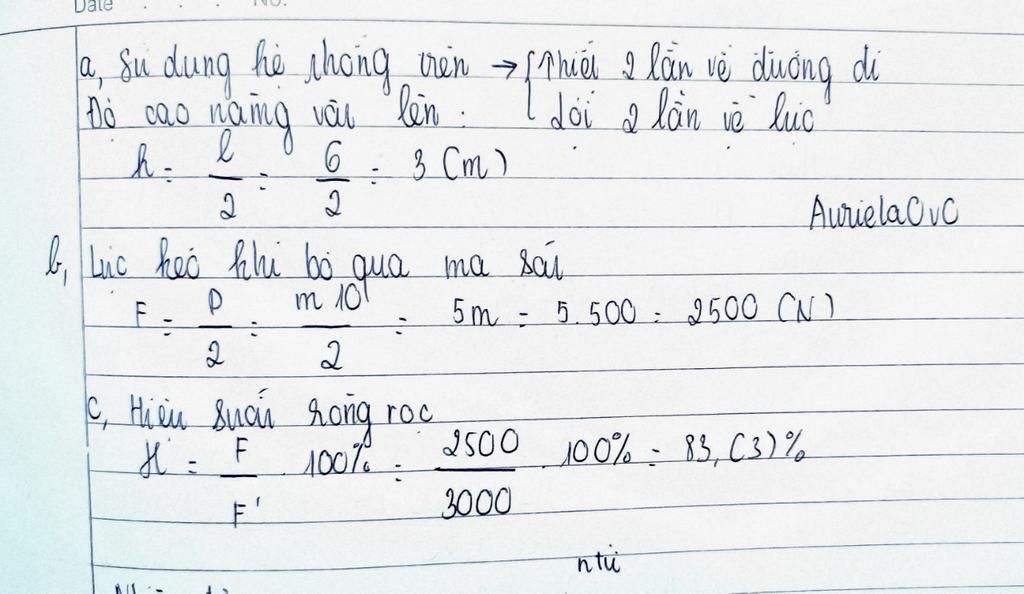 Date . . . No.
a, Sử dụng hệ thống trên → { Thiệt 2 lần về đường đi
Độ cao nâng vật lên : { Lợi 2 lần về lực
h = l/2 = 6/2 = 3 (m)
AurielaOvO
b, Lực kéo khi bỏ qua ma sát
F = P/2 = m 10/2 = 5m = 5.500 = 2500 (N)
c, Hiệu suất ròng rọc
H = F/F' . 100% = 2500/3000 . 100% = 83,(3)%